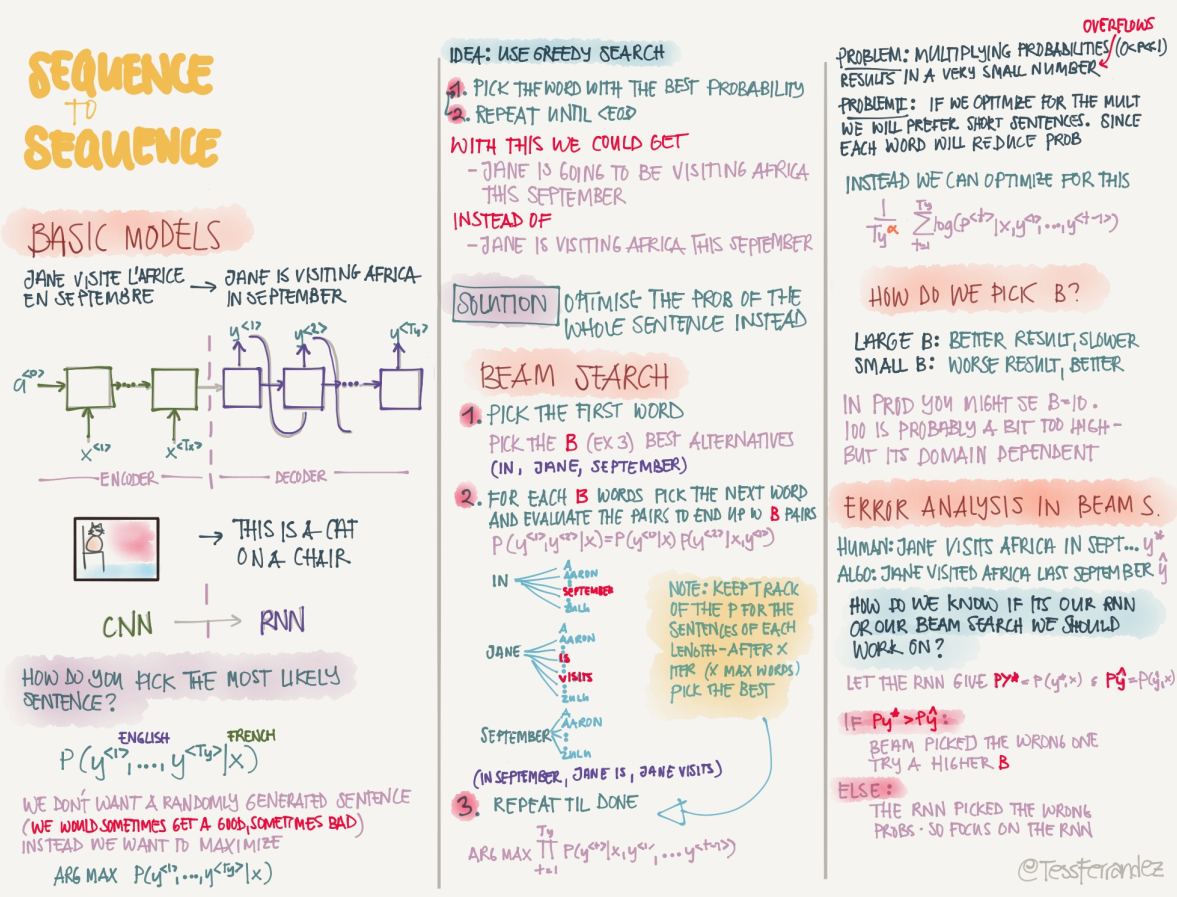 SEQUENCE
TO
SEQUENCE
BASIC MODELS
JANE VISITE L'AFRICE
EN SEPTEMBRE
→ JANE IS VISITING AFRICA
IN SEPTEMBER
y<1> y<2> y<Ty>
a<0>
x<1> x<Tx>
ENCODER DECODER
→ THIS IS A CAT
ON A CHAIR
CNN → RNN
HOW DO YOU PICK THE MOST LIKELY
SENTENCE?
ENGLISH FRENCH
P(y<1>,..., y<Ty>|x)
WE DON'T WANT A RANDOMLY GENERATED SENTENCE
(WE WOULD SOMETIMES GET A GOOD, SOMETIMES BAD)
INSTEAD WE WANT TO MAXIMIZE
ARG MAX P(y<1>,..., y<Ty>|x)
IDEA: USE GREEDY SEARCH
1. PICK THE WORD WITH THE BEST PROBABILITY
2. REPEAT UNTIL <EOS>
WITH THIS WE COULD GET
- JANE IS GOING TO BE VISITING AFRICA
THIS SEPTEMBER
INSTEAD OF
- JANE IS VISITING AFRICA THIS SEPTEMBER
SOLUTION OPTIMISE THE PROB OF THE
WHOLE SENTENCE INSTEAD
BEAM SEARCH
1. PICK THE FIRST WORD
PICK THE B (EX 3) BEST ALTERNATIVES
(IN, JANE, SEPTEMBER)
2. FOR EACH B WORDS PICK THE NEXT WORD
AND EVALUATE THE PAIRS TO END UP W B PAIRS
P(y<1>,y<2>|x)=P(y<1>|x) P(y<2>|x,y<1>)
IN
A
AARON
SEPTEMBER
ZULU
JANE
A
AARON
IS
VISITS
ZULU
SEPTEMBER
A
AARON
ZULU
NOTE: KEEP TRACK
OF THE P FOR THE
SENTENCES OF EACH
LENGTH-AFTER X
ITER (X MAX WORDS)
PICK THE BEST
(IN SEPTEMBER, JANE IS, JANE VISITS)
3. REPEAT TIL DONE
ARG MAX Ty ∏ t=1 P(y<t>|x,y<1>,...y<t-1>)
OVERFLOWS
PROBLEM: MULTIPLYING PROBABILITIES (0<P<1)
RESULTS IN A VERY SMALL NUMBER
PROBLEM II: IF WE OPTIMIZE FOR THE MULT
WE WILL PREFER SHORT SENTENCES. SINCE
EACH WORD WILL REDUCE PROB
INSTEAD WE CAN OPTIMIZE FOR THIS
1/Ty^α Ty ∑ t=1 log(P<t>|x,y<1>,...,y<t-1>)
HOW DO WE PICK B?
LARGE B: BETTER RESULT, SLOWER
SMALL B: WORSE RESULT, BETTER
IN PROD YOU MIGHT SE B=10.
100 IS PROBABLY A BIT TOO HIGH-
BUT ITS DOMAIN DEPENDENT
ERROR ANALYSIS IN BEAM S.
HUMAN: JANE VISITS AFRICA IN SEPT... y*
ALGO: JANE VISITED AFRICA LAST SEPTEMBER ŷ
HOW DO WE KNOW IF ITS OUR RNN
OR OUR BEAM SEARCH WE SHOULD
WORK ON?
LET THE RNN GIVE Py* = P(y*,x) & Pŷ=P(ŷ,x)
IF Py*>Pŷ:
BEAM PICKED THE WRONG ONE
TRY A HIGHER B
ELSE:
THE RNN PICKED THE WRONG
PROBS. SO FOCUS ON THE RNN
@TessFerrandez